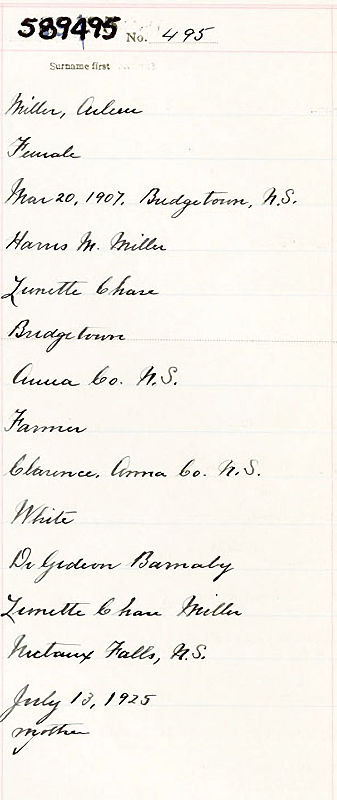 589495 No. 495
Surname first
Miller, Arleen
Female
Mar 20, 1907. Bridgetown, N.S.
Harris M. Miller
Zunette Chase
Bridgetown
Anna Co. N.S.
Farmer
Clarence, Anna Co. N.S.
White
Dr Gideon Barnaby
Zunette Chase Miller
Nictaux Falls, N.S.
July 13, 1925
mother